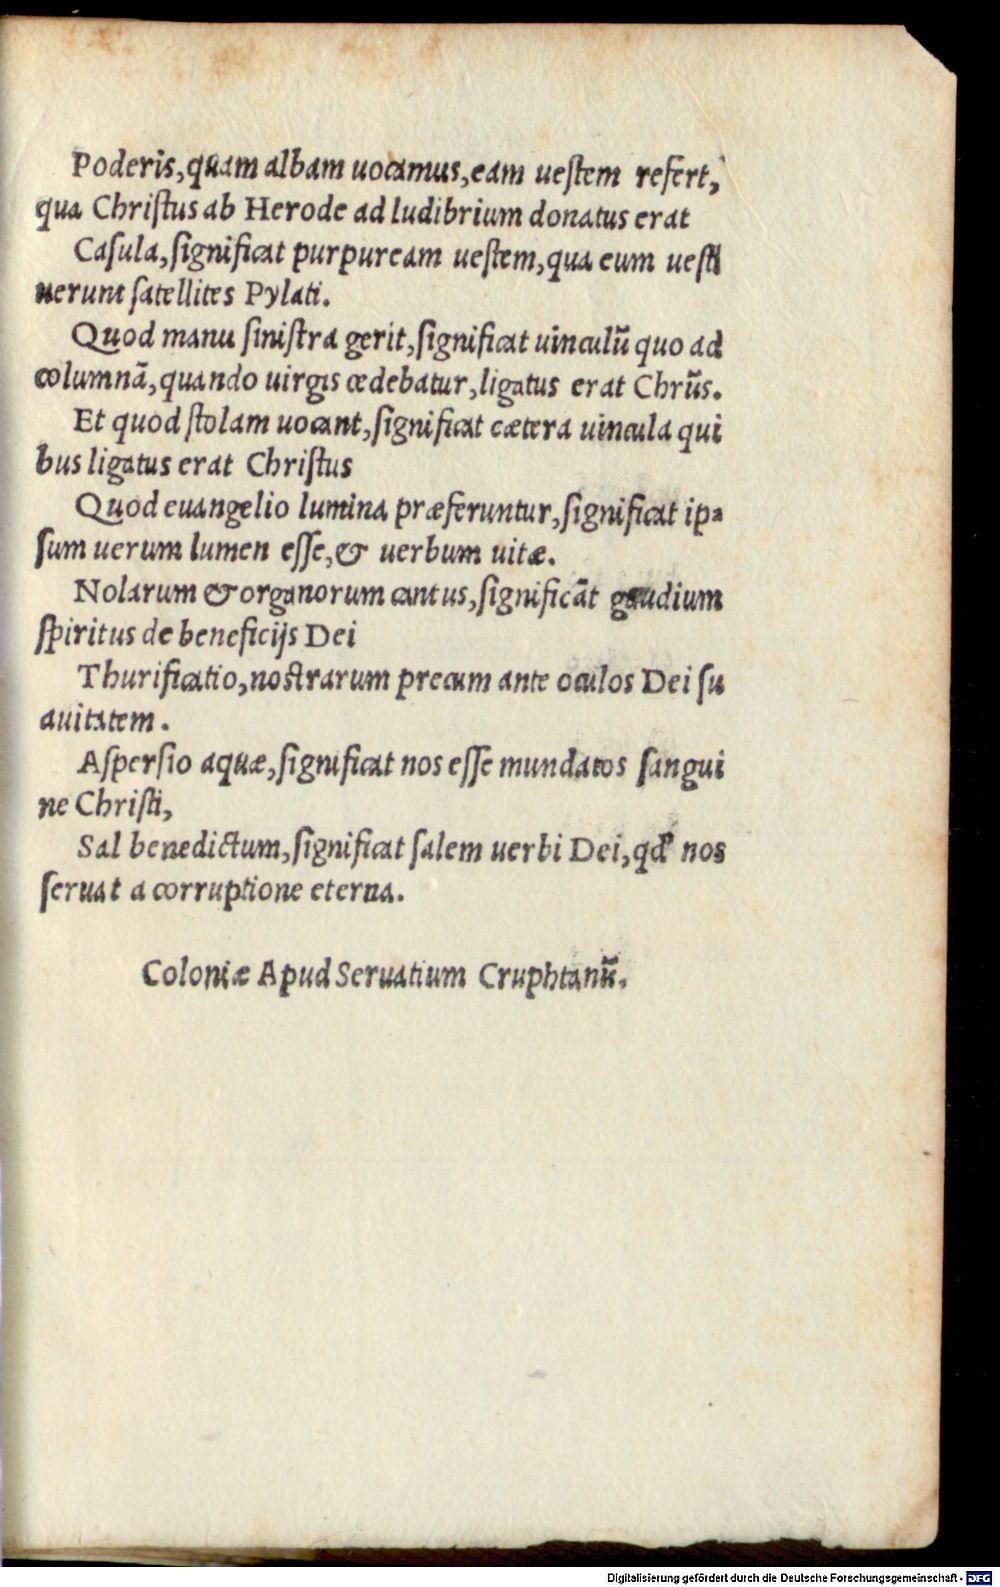 Poderis, quam albam uocamus, eam ueſtem refert,
qua Chriſtus ab Herode ad ludibrium donatus erat
Caſula, ſignificat purpuream ueſtem, qua eum ueſti
uerunt ſatellites Pylati.
Quod manu ſiniſtra gerit, ſignificat uinculū quo ad
columnā, quando uirgis cædebatur, ligatus erat Chrūs.
Et quod ſtolam uocant, ſignificat cætera uincula qui
bus ligatus erat Chriſtus
Quod euangelio lumina præferuntur, ſignificat ip⸗
ſum uerum lumen eſſe, & uerbum uitæ.
Nolarum & organorum cantus, ſignificāt gaudium
ſpiritus de beneficijs Dei
Thurificatio, noſtrarum precum ante oculos Dei ſu
auitatem.
Aſperſio aquæ, ſignificat nos eſſe mundatos ſangui
ne Chriſti,
Sal benedictum, ſignificat ſalem uerbi Dei, qd' nos
ſeruat a corruptione eterna.
Coloniæ Apud Seruatium Cruphtanū.
Digitalisierung gefördert durch die Deutsche Forschungsgemeinschaft - DFG